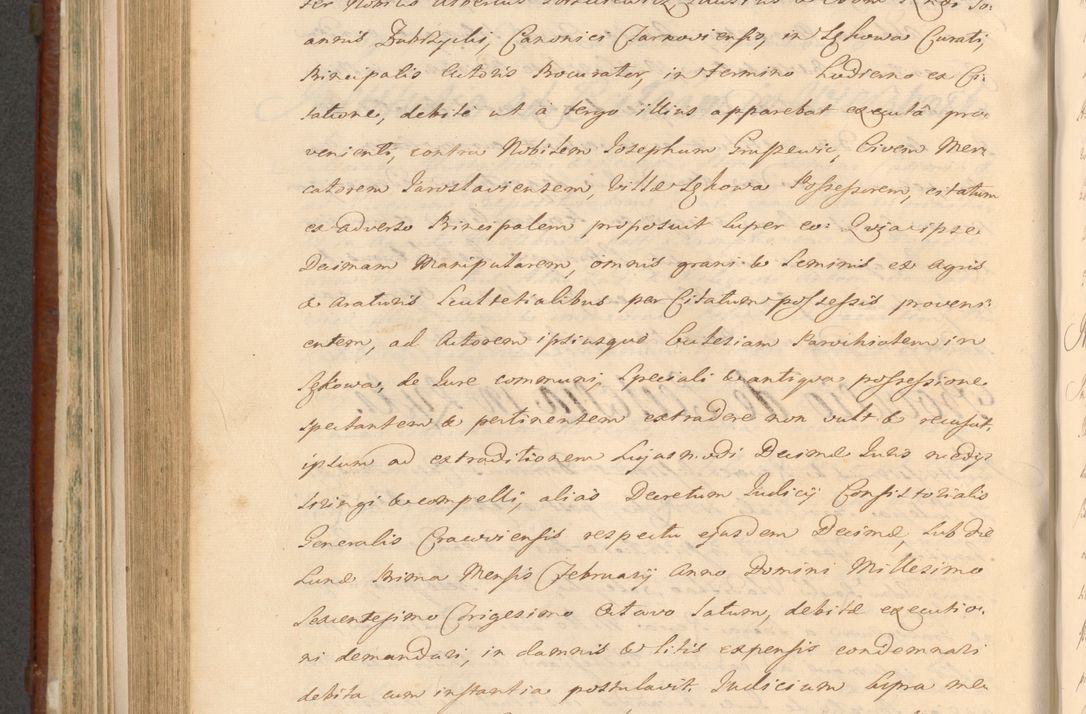 annis Dubszycki, Canonici Tarnoviensis, in Lękowa Curati,
Principalis Actoris Procurator, in termino hodierno ex Ci-
tatione, debite ut a tergo illius apparebat executâ pro-
venienti, contra Nobilem Josephum Grussewic, Civem Mer-
catorem Jaroslaviensem, Villæ Lękowa Possessorem, citatum
ex adverso Principalem proposuit super eo: Quia ipse
Decimam Manipularem, omnis grani & Seminis ex Agris
& araturis Scultetialibus per Citatum possessis proveni-
entem, ad Actorem ipsiusque Ecclesiam Parochialem in
Lękowa, de Jure communi, speciali & antiqva possessione
spectantem & pertinentem extradere non vult & recusat,
ipsum ad extraditionem hujasmodi Decimæ Juris medijs
stringi & compelli, alias Decretum Judicij Consistorialis
Generalis Cracoviensis respectu ejusdem Decimæ, sub die
Lunæ Prima Mensis Februarij Anno Domini Millesimo
Sexcentesimo Trigesimo Octavo latum, debitæ executio-
ni demandari, in damnis & litis expensis condemnari
debita cum instantia postulavit. Judicium supra me-